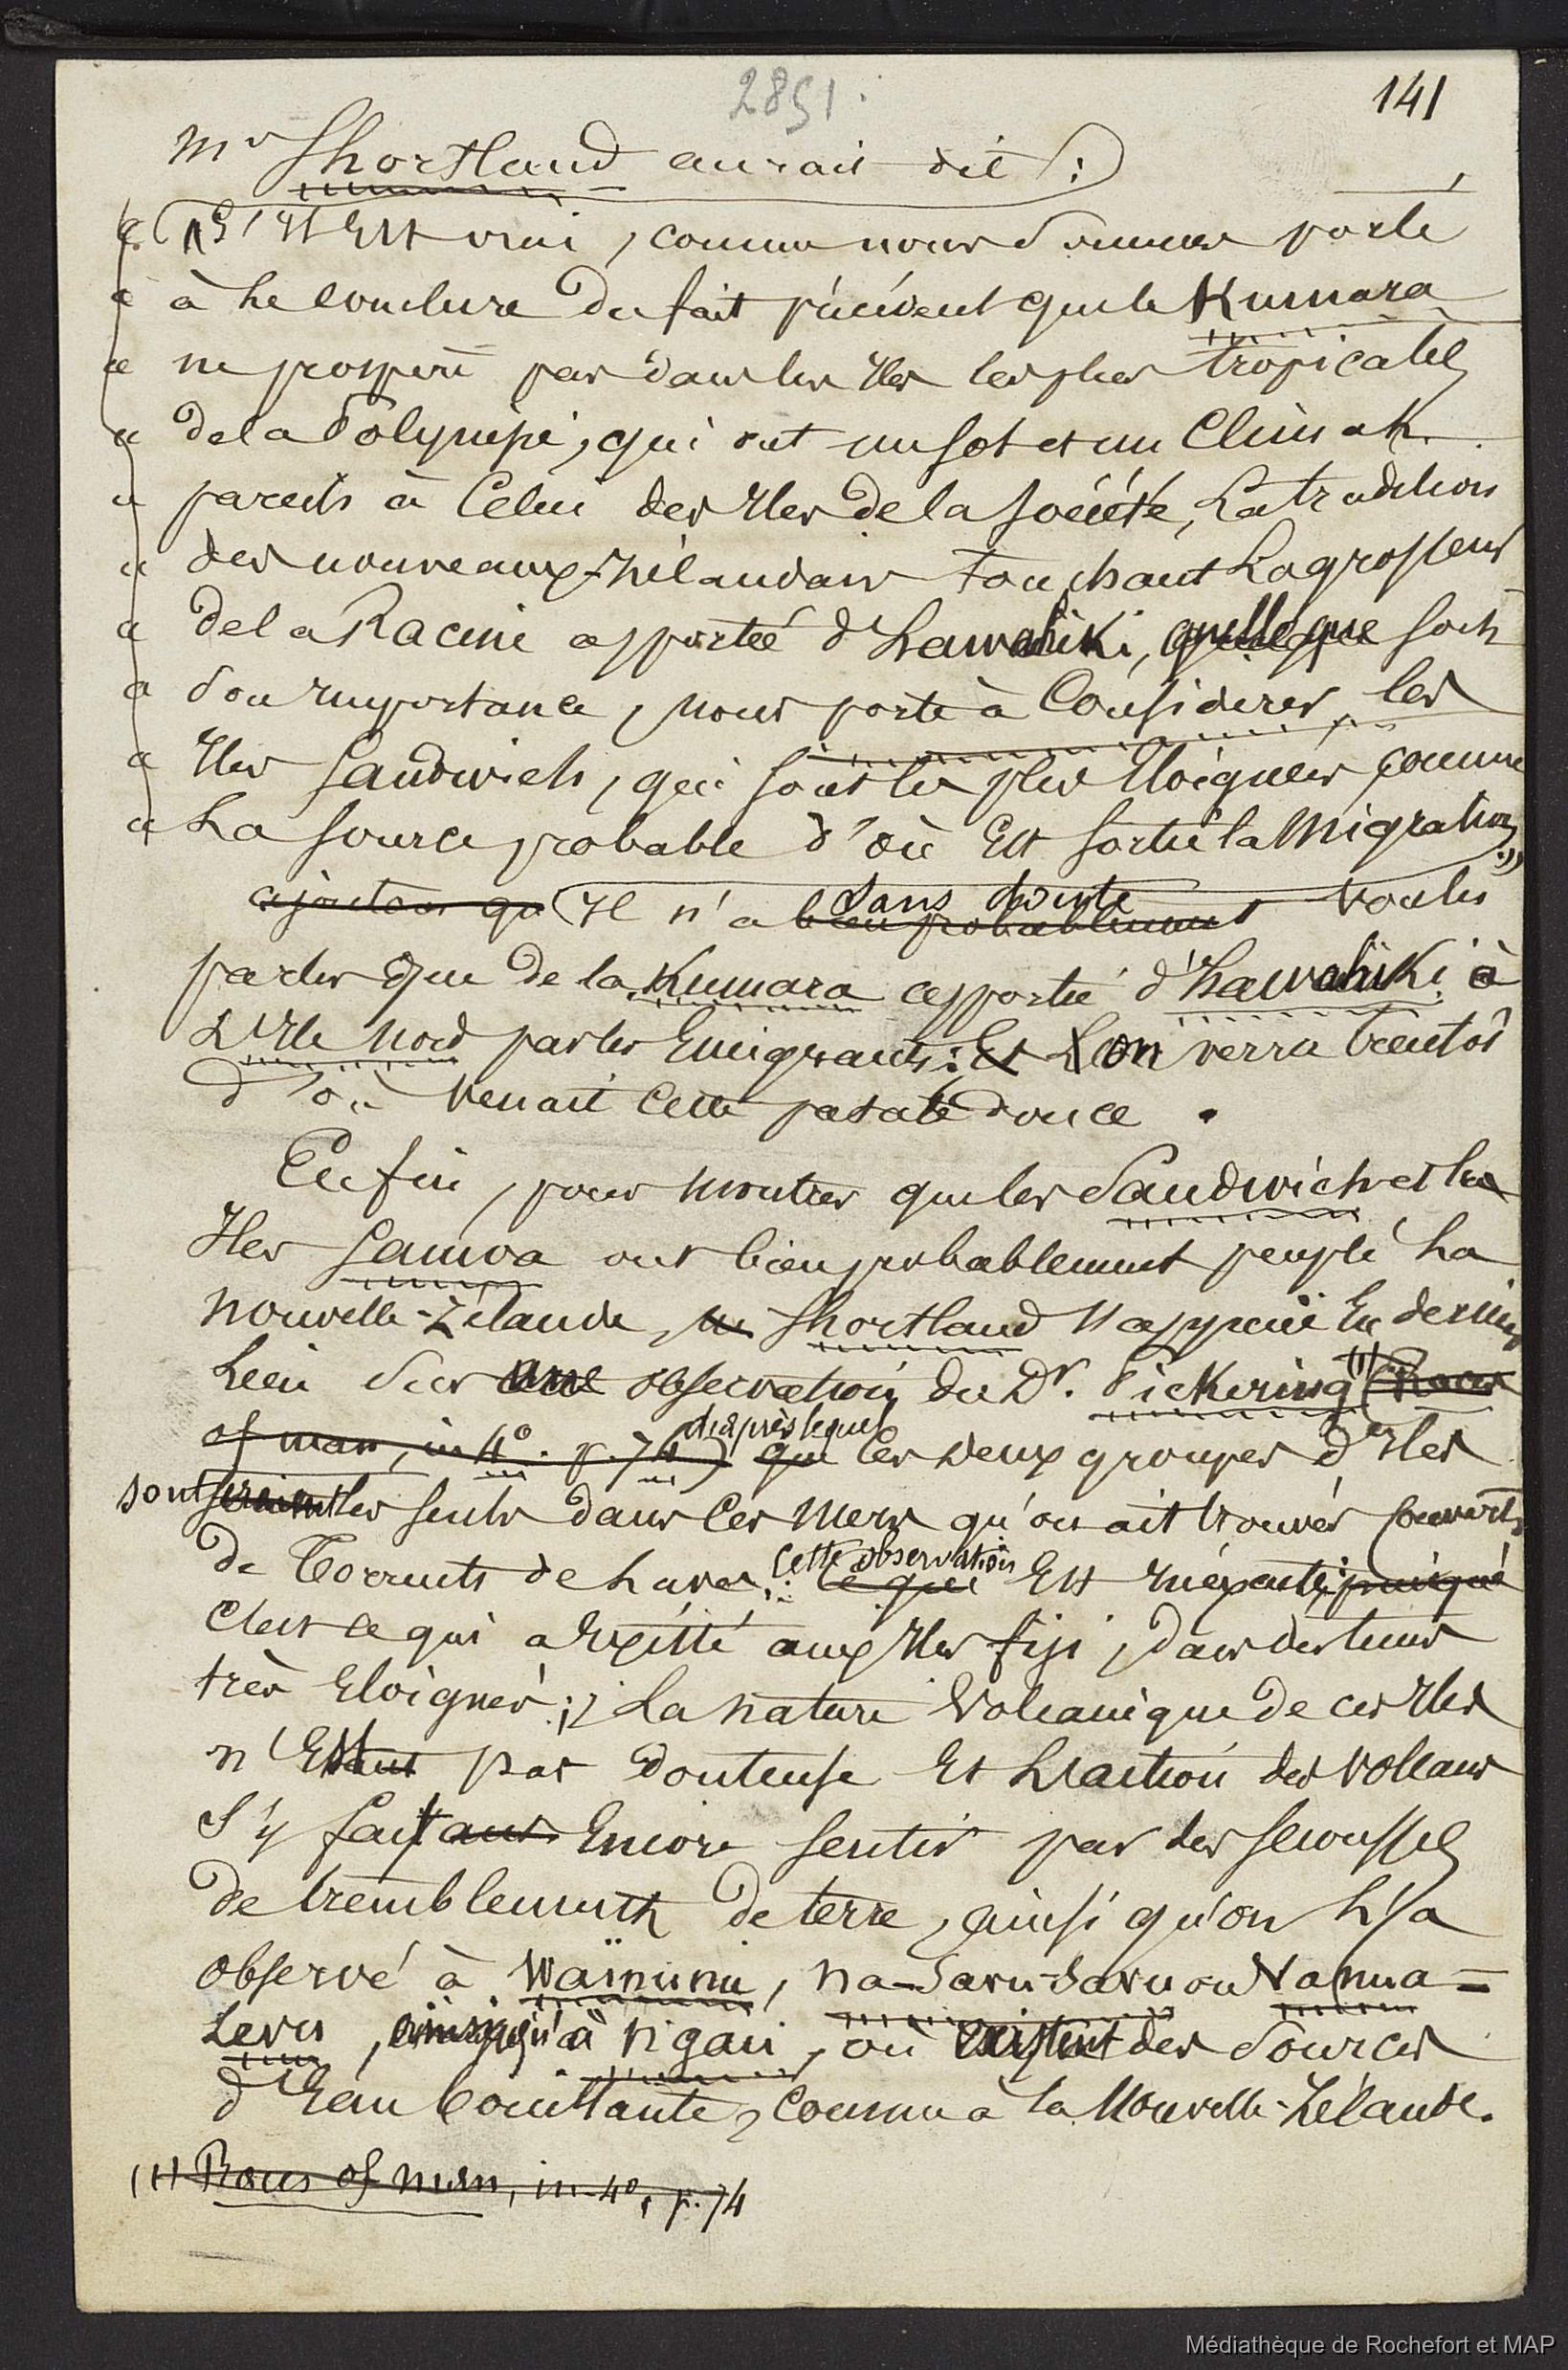 2851.
141
Mr Shortland aurait dit :
« S'il Est vrai, comme nous sommes porté
« à le conclure du fait précédent que le Kumara
« ne prospère pas dans les Iles les plus tropicales
« de la Polynésie, qui ont un sol et un Climat
« pareils à Celui des Iles de la Société, La tradition
« des nouveaux-zélandais touchant La grosseur
« de la Racine apportée d'hawahiki, quelle que soit
« son importance, nous porte à Considérer les
« Iles Sandwich, qui sont les plus Eloignées comme
« La source probable d'où Est sortie la Migration. »
ajoutons qu Il n'a bien probablement sans doute voulu
parler que de la Kumara apportée d'hawahiki à
L'Ile Nord par les Emigrants : Et L'on verra bientôt
d'où venait cette patate douce.
Enfin, pour montrer que les Sandwich et les
Iles Samoa ont bien probablement peuplé La
Nouvelle-Zélande, Shortland s'appuie En dernier
Lieu sur une observation du Dr. Pickering (1) (Races
of man, in 4°. p. 74) que d'après lequel ces deux groupes d'Iles
sont seraient les seuls dans ces Mers qu'on ait trouvés couverts
de Torrents de laves : ce qui cette observation Est inéxacte; puisque
c'est ce qui a Existé aux Iles fiji, dans des tems
très Eloignés; La nature Volcanique de ces Iles
n'Est pas douteuse Et L'action des volcans
s'y fait Encore sentir par des secousses
de tremblements de terre, ainsi qu'on L'a
observé à Waïnunu, Na-Savu-Savu ou Vanua=
Levu, ainsi qu'à Ngau, où existent des sources
d'Eau bouillante, comme à la Nouvelle-Zélande.
(1) Races of man, in-4°, p. 74
Médiathèque de Rochefort et MAP